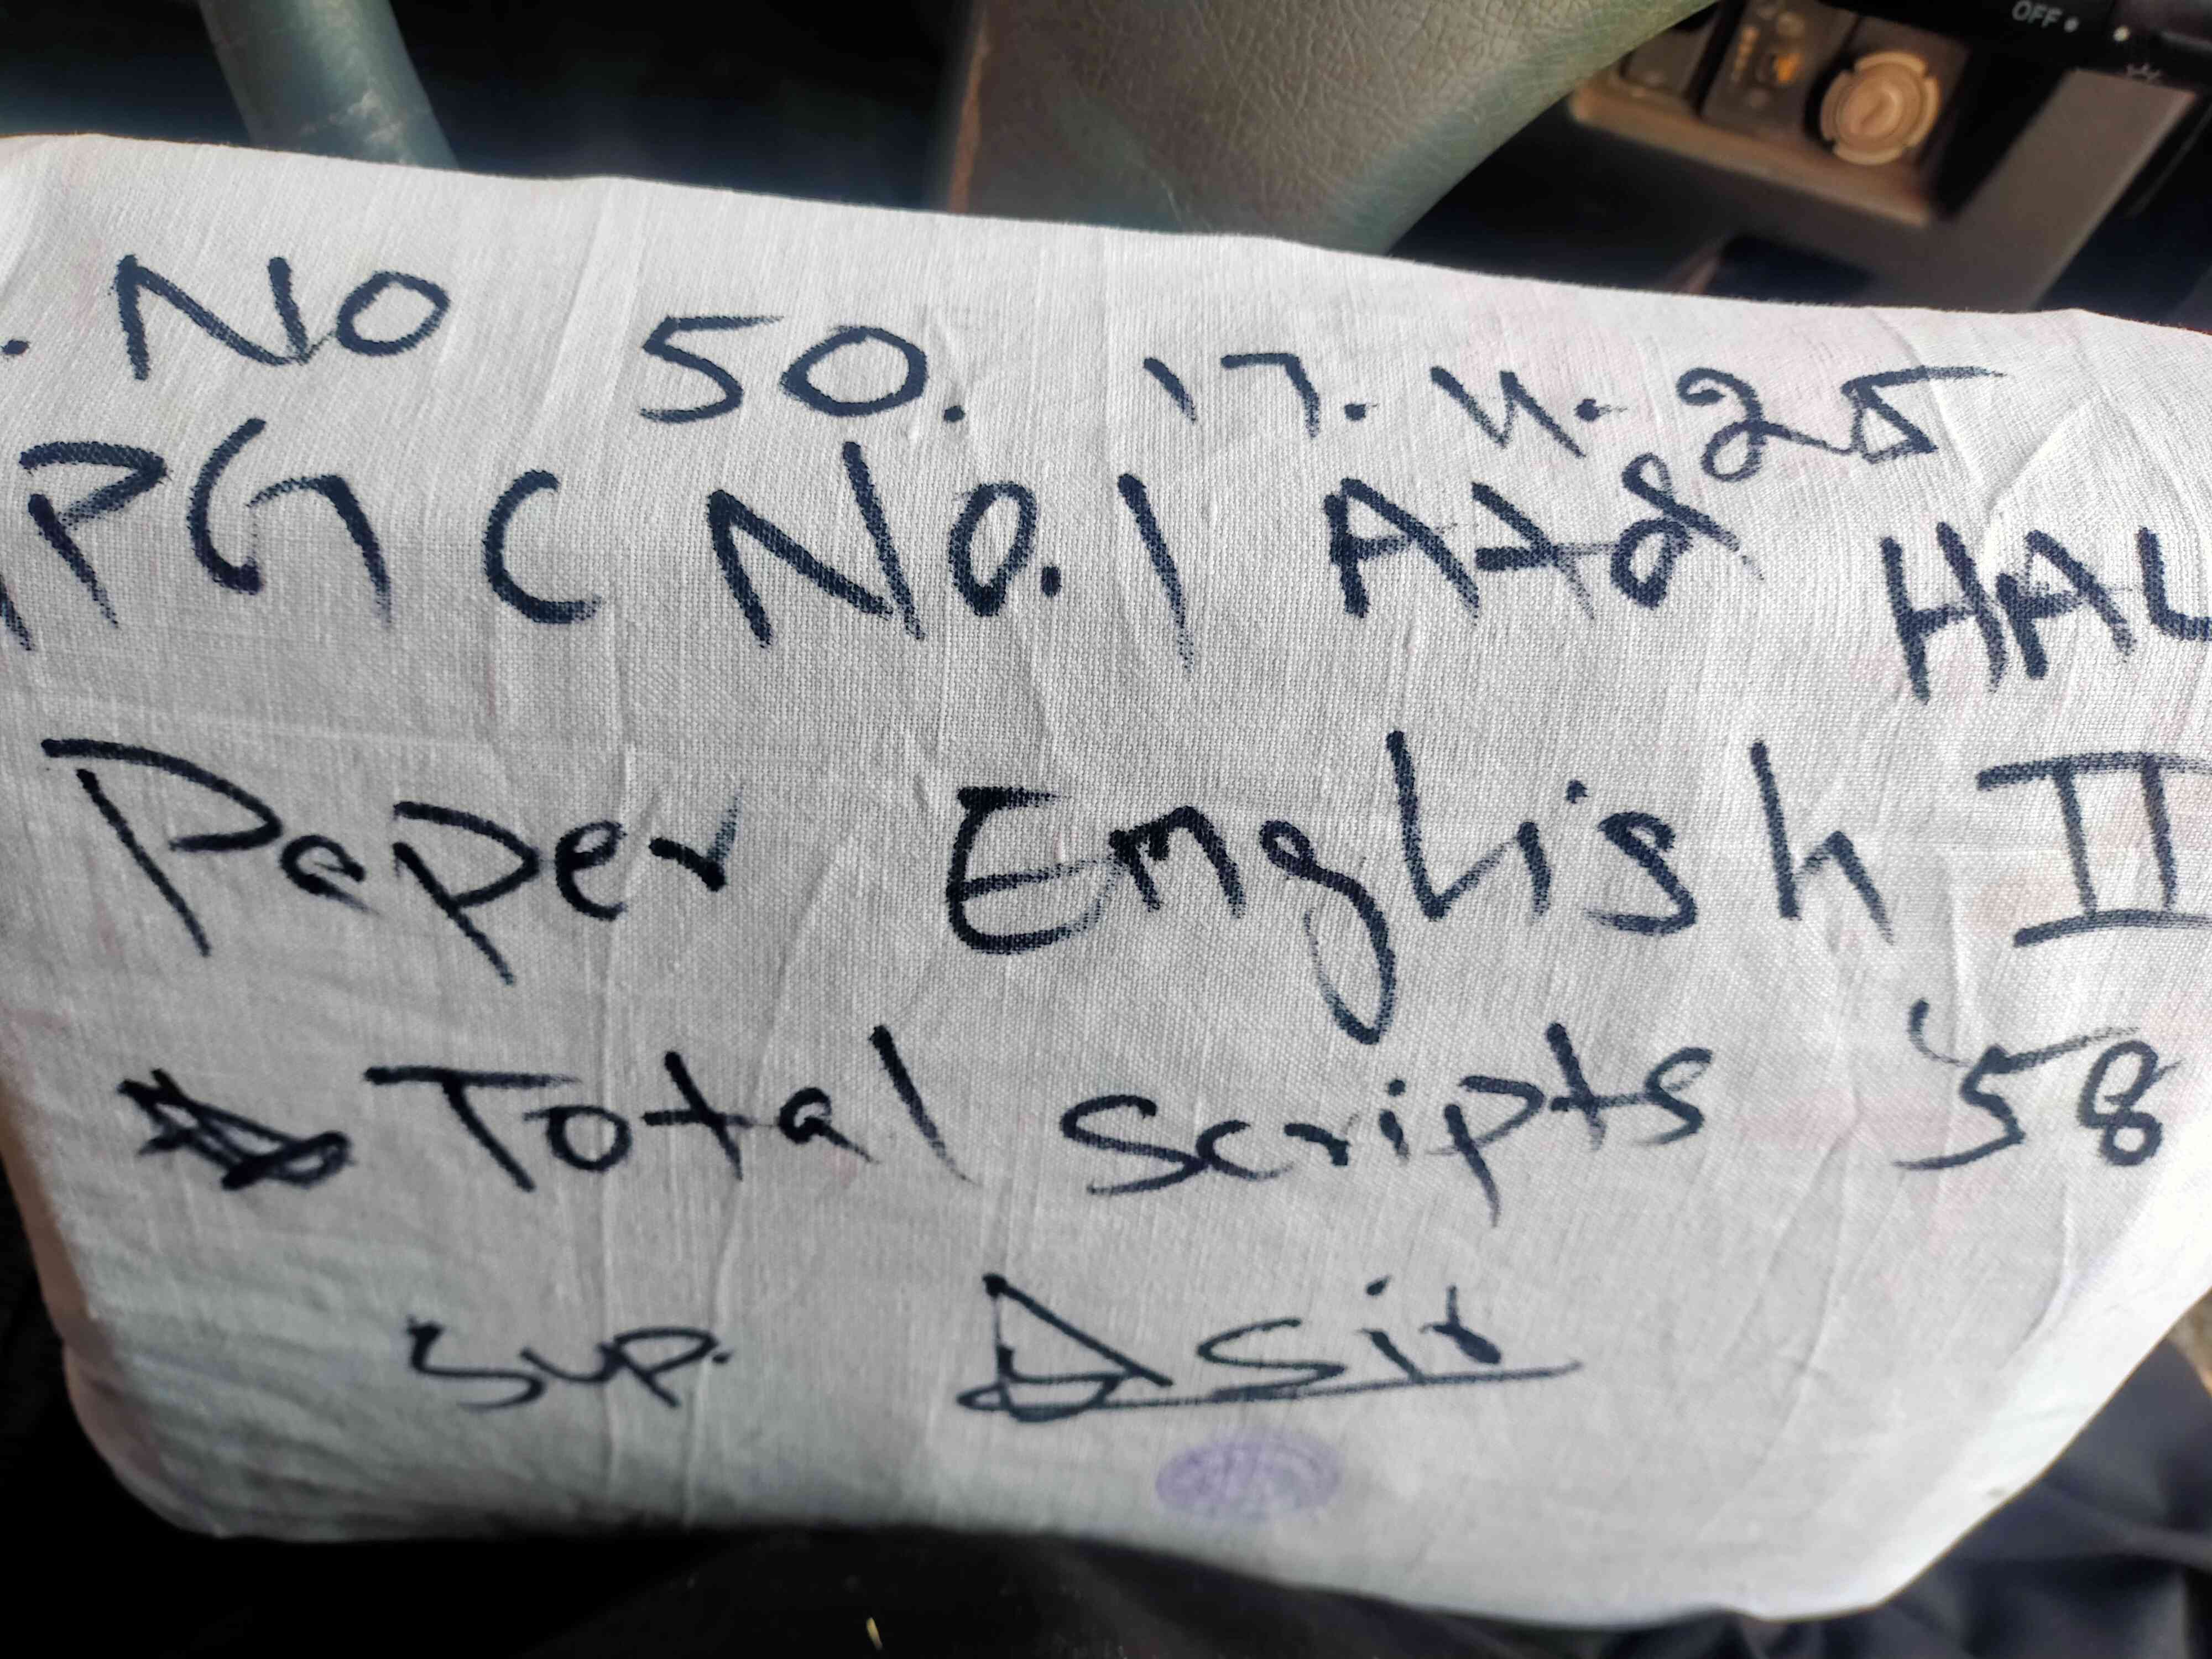 OFF
. No 50. 17.4.25
PGC No.1 Atd HAL
Paper English II
Total Scripts 58
SUP. Asir